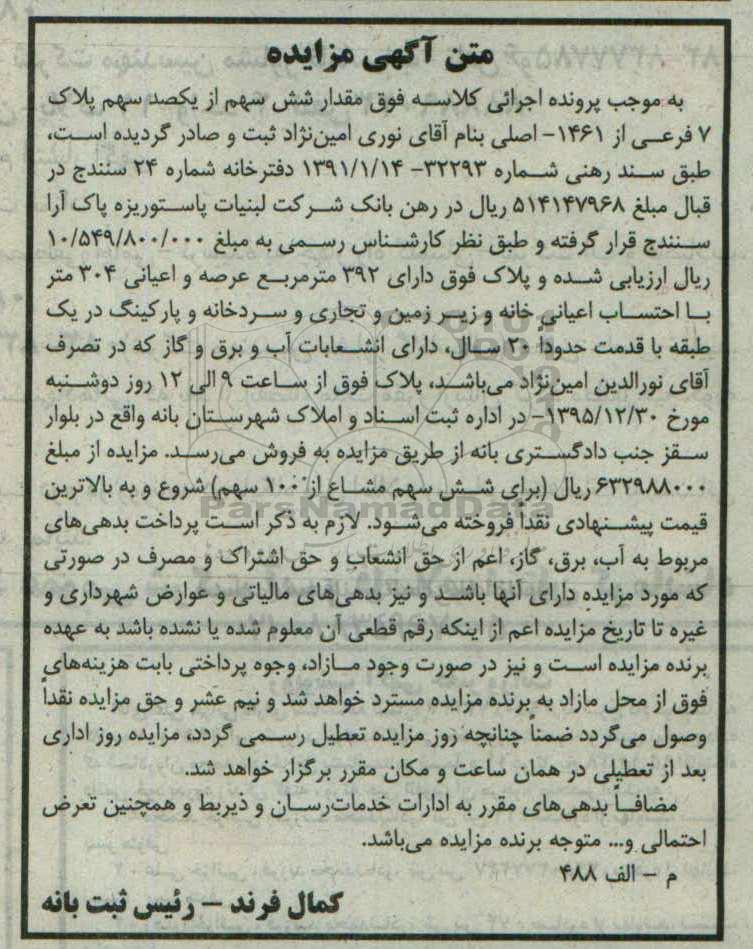 متن آگهی مزایده
به موجب پرونده اجرائی کلاسه فوق مقدار شش سهم از یکصد سهم پلاک
۷ فرعی از ۱۴۶۱- اصلی بنام آقای نوری امین‌نژاد ثبت و صادر گردیده است،
طبق سند رهنی شماره ۳۲۲۹۳- ۱۳۹۱/۱/۱۴ دفترخانه شماره ۲۴ سنندج در
قبال مبلغ ۵۱۴۱۴۷۹۶۸ ریال در رهن بانک شرکت لبنیات پاستوریزه پاک آرا
سنندج قرار گرفته و طبق نظر کارشناس رسمی به مبلغ ۱۰/۵۴۹/۸۰۰/۰۰۰
ریال ارزیابی شده و پلاک فوق دارای ۳۹۲ مترمربع عرصه و اعیانی ۳۰۴ متر
با احتساب اعیانی خانه و زیر زمین و تجاری و سردخانه و پارکینگ در یک
طبقه با قدمت حدوداً ۲۰ سال، دارای انشعابات آب و برق و گاز که در تصرف
آقای نورالدین امین‌نژاد می‌باشد، پلاک فوق از ساعت ۹ الی ۱۲ روز دوشنبه
مورخ ۱۳۹۵/۱۲/۳۰- در اداره ثبت اسناد و املاک شهرستان بانه واقع در بلوار
سقز جنب دادگستری بانه از طریق مزایده به فروش می‌رسد. مزایده از مبلغ
۶۳۲۹۸۸۰۰۰ ریال (برای شش سهم مشاع از ۱۰۰ سهم) شروع و به بالاترین
قیمت پیشنهادی نقداً فروخته می‌شود. لازم به ذکر است پرداخت بدهی‌های
مربوط به آب، برق، گاز، اعم از حق انشعاب و حق اشتراک و مصرف در صورتی
که مورد مزایده دارای آنها باشد و نیز بدهی‌های مالیاتی و عوارض شهرداری و
غیره تا تاریخ مزایده اعم از اینکه رقم قطعی آن معلوم شده یا نشده باشد به عهده
برنده مزایده است و نیز در صورت وجود مازاد، وجوه پرداختی بابت هزینه‌های
فوق از محل مازاد به برنده مزایده مسترد خواهد شد و نیم عشر و حق مزایده نقداً
وصول می‌گردد ضمناً چنانچه روز مزایده تعطیل رسمی گردد، مزایده روز اداری
بعد از تعطیلی در همان ساعت و مکان مقرر برگزار خواهد شد.
مضافاً بدهی‌های مقرر به ادارات خدمات‌رسان و ذیربط و همچنین تعرض
احتمالی و... متوجه برنده مزایده می‌باشد.
م - الف ۴۸۸
کمال فرند - رئیس ثبت بانه
ParsNamadData